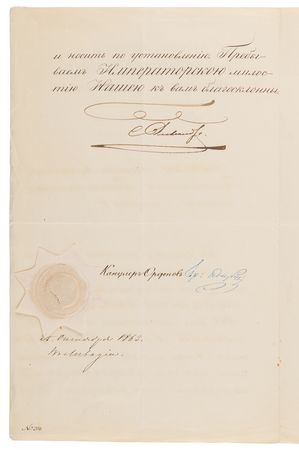 и носить по установленію. Пребы-
ваемъ Императорскою милос-
тію Нашею къ вамъ благосклонны
Александръ
Канцлеръ Орденовъ Гр:
Октября 1862.